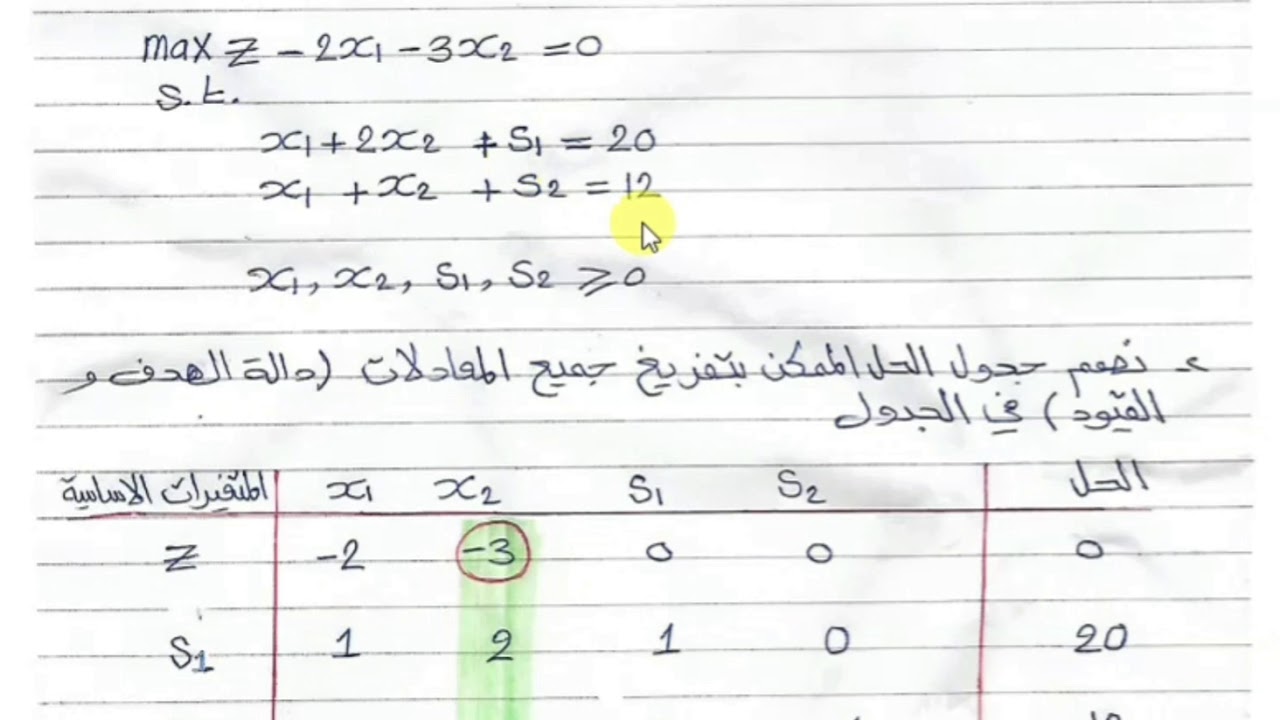 max Z - 2x₁ - 3x₂ = 0
s.t.
x₁ + 2x₂ + S₁ = 20
x₁ + x₂ + S₂ = 12
x₁, x₂, S₁, S₂ ⩾ 0
2- نصمم جدول الحل الممكن بتفريغ جميع المعادلات (دالة الهدف و
القيود) في الجدول
المتغيرات الاساسية x₁ x₂ S₁ S₂ الحل
Z -2 -3 0 0 0
S₁ 1 2 1 0 20